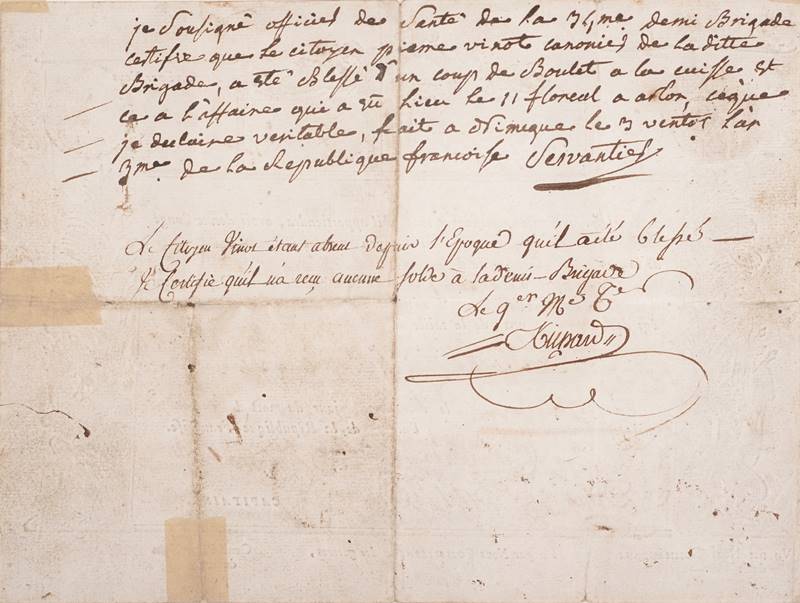 je Sousigné officiés de Santé de la 34me demi Brigade
certifie que le citoyen pierre vinot canoniés de la ditte
Brigade, a Eté Blessé d'un coup de Boulet a la cuisse Et
ca a l'affaire qui a Eu Lieu le 11 floreal a arlon, ceque
je declaire veritable, fait a Nimique le 3 ventos l'an
3me de la Republique francoise Servantiés
Le Citoyen Vinot étant absent depuis l'Epoque qu'il a été blessé
Je Certifie qu'il n'a reçu aucune solde à la demi-Brigade
Le qer Me